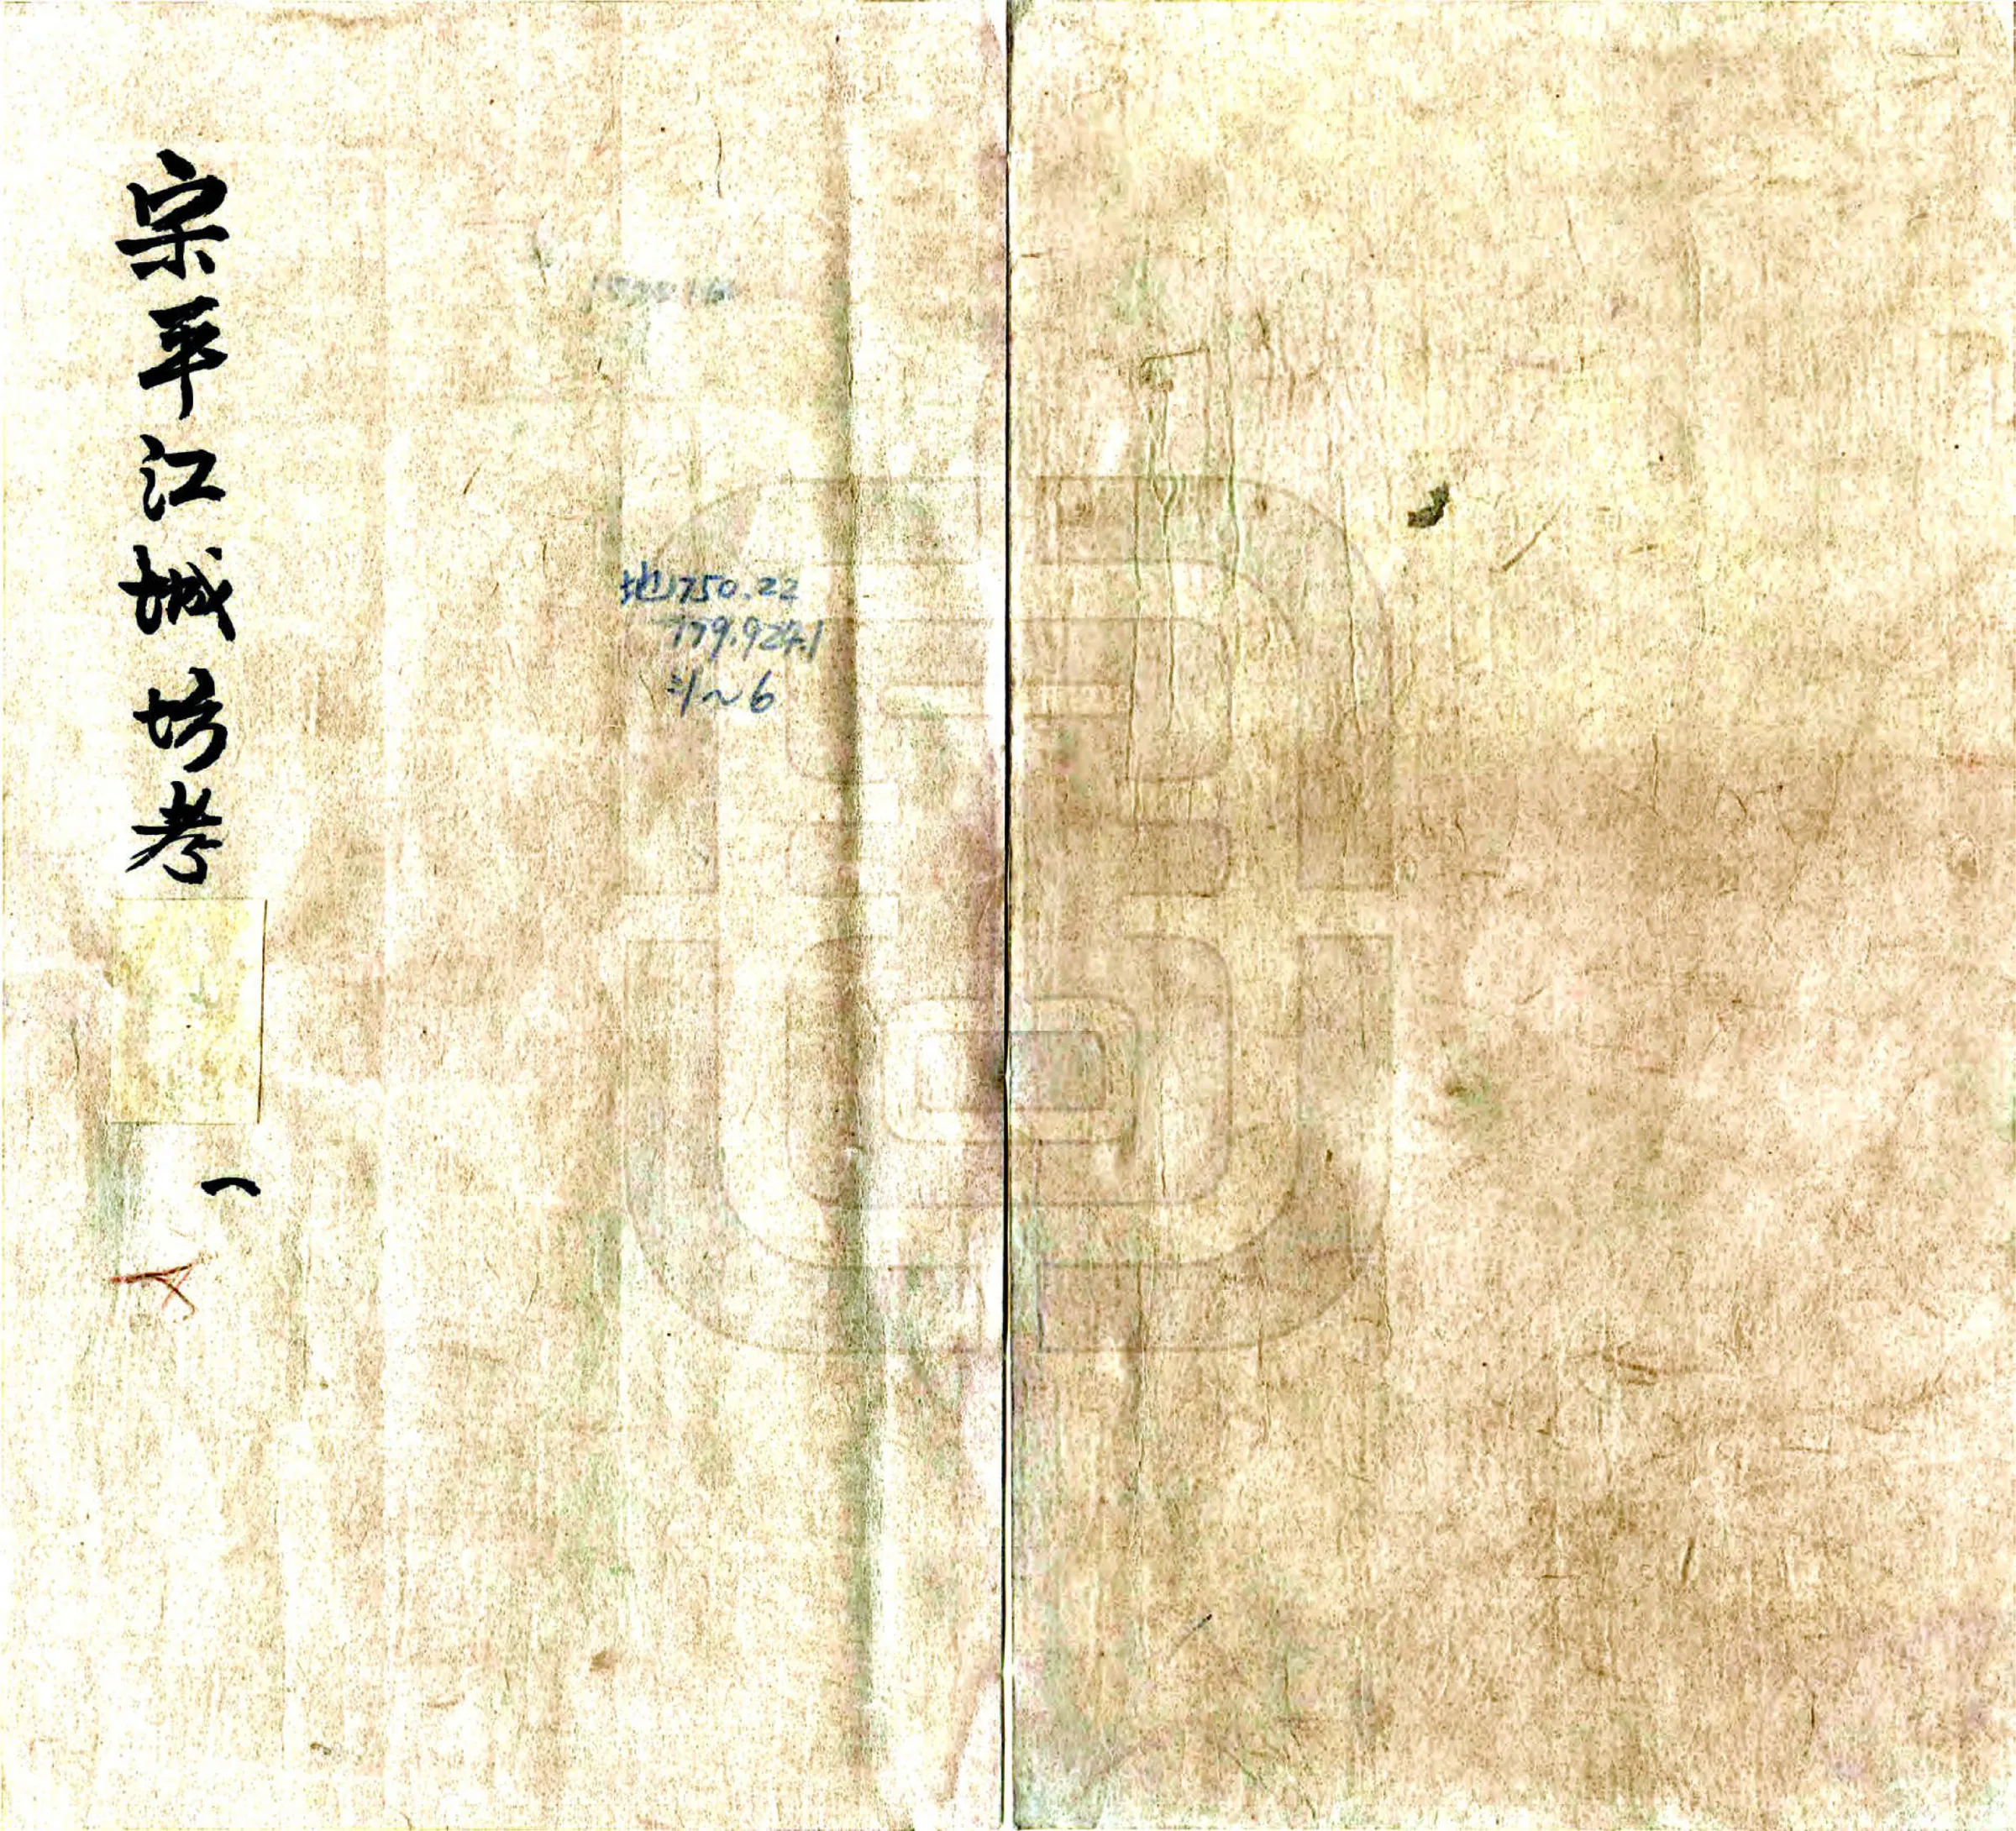 宋平江城坊考
一
地750.22
779.924.1
:1~6